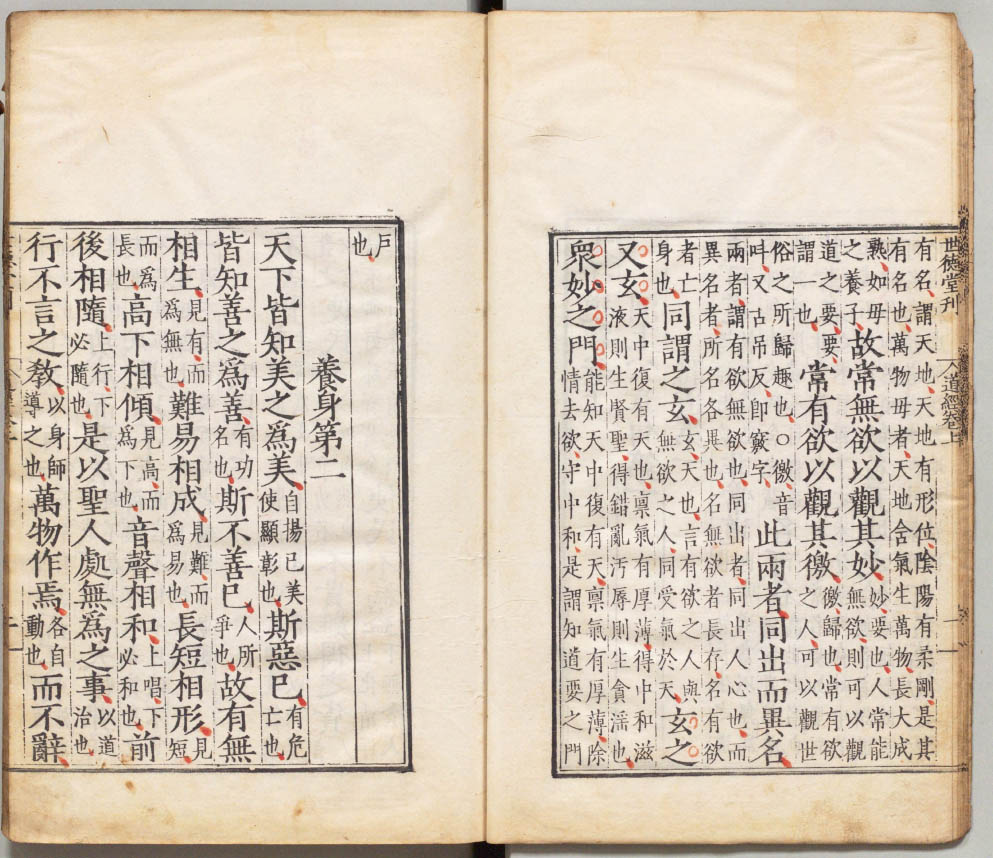 世德堂刊 道經卷上 一
有名謂天地天地有形位陰陽有柔剛是其
有名也萬物母者天地含氣生萬物長大成
熟如母之養子故常無欲以觀其妙妙要也人常能無欲則可以觀
道之要要謂一也常有欲以觀其徼徼歸也常有欲之人可以觀世
俗之所歸趣也○徼音呌又古吊反卽竅字此兩者同出而異名
兩者謂有欲無欲也同出者同出人心也而
異名者所名各異也名無欲者長存名有欲
者亡身也同謂之玄玄天也言有欲之人與無欲之人同受氣於天玄之
又玄天中復有天也禀氣有厚薄得中和滋液則生賢聖得錯亂污辱則生貪滛也
衆妙之門能知天中復有天禀氣有厚薄除情去欲守中和是謂知道要之門
戶也
養身第二
天下皆知美之爲美自揚己美使顯彰也斯惡已有危亡也
皆知善之爲善有功名也斯不善已人所爭也故有無
相生見有而爲無也難易相成見難而爲易也長短相形見短
而爲長也高下相傾見高而爲下也音聲相和上唱下必和也前
後相隨上行下必隨也是以聖人處無爲之事以道治也
行不言之敎以身師導之也萬物作焉各自動也而不辭